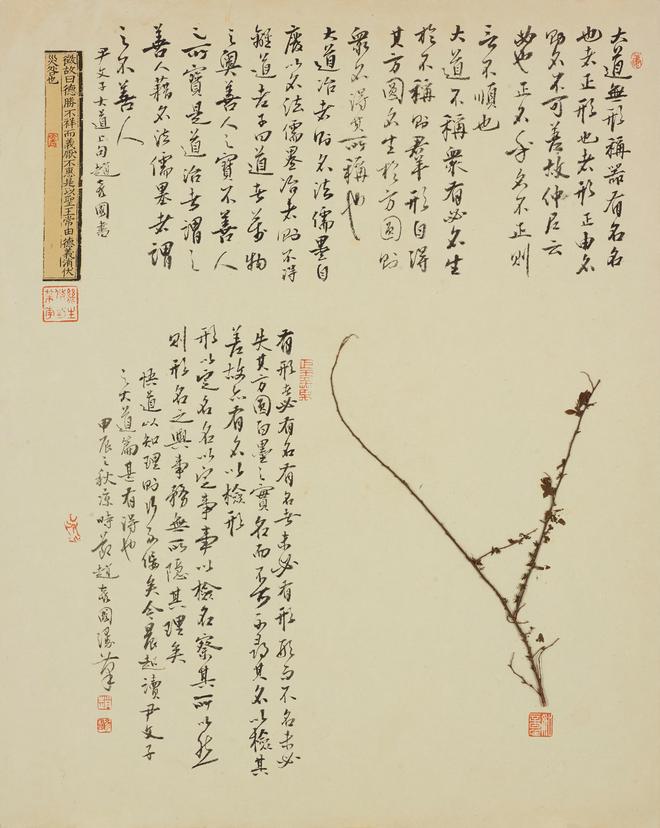 大道無形稱器有名名
也者正形也者形正由名
則名不可差故仲尼云
必也正名乎名不正則
言不順也
大道不稱衆有必名生
於不稱則羣形自得
其方圓名生於方圓則
衆名得其所稱也
大道治者則名法儒墨自
廢以名法儒墨治者則不得
離道老子曰道者萬物
之奧善人之寶不善人
之所寶是道治者謂之
善人藉名法儒墨者謂
之不善人
尹文子大道上句趙國書
徵故曰德勝不祥而義厭不惠是以聖王常由德義消伏
災咎也
有形者必有名有名者未必有形形而不名未必
失其方圓白黑之實名而不可不尋其名以檢其
差故亦有名以檢形
形以定名名以定事事以檢名察其所以然
則形名之與事物無所隱其理矣
悟道以知理則矣今晨起讀尹文子
之大道篇甚有得也
甲辰之秋涼時節趙國漫筆